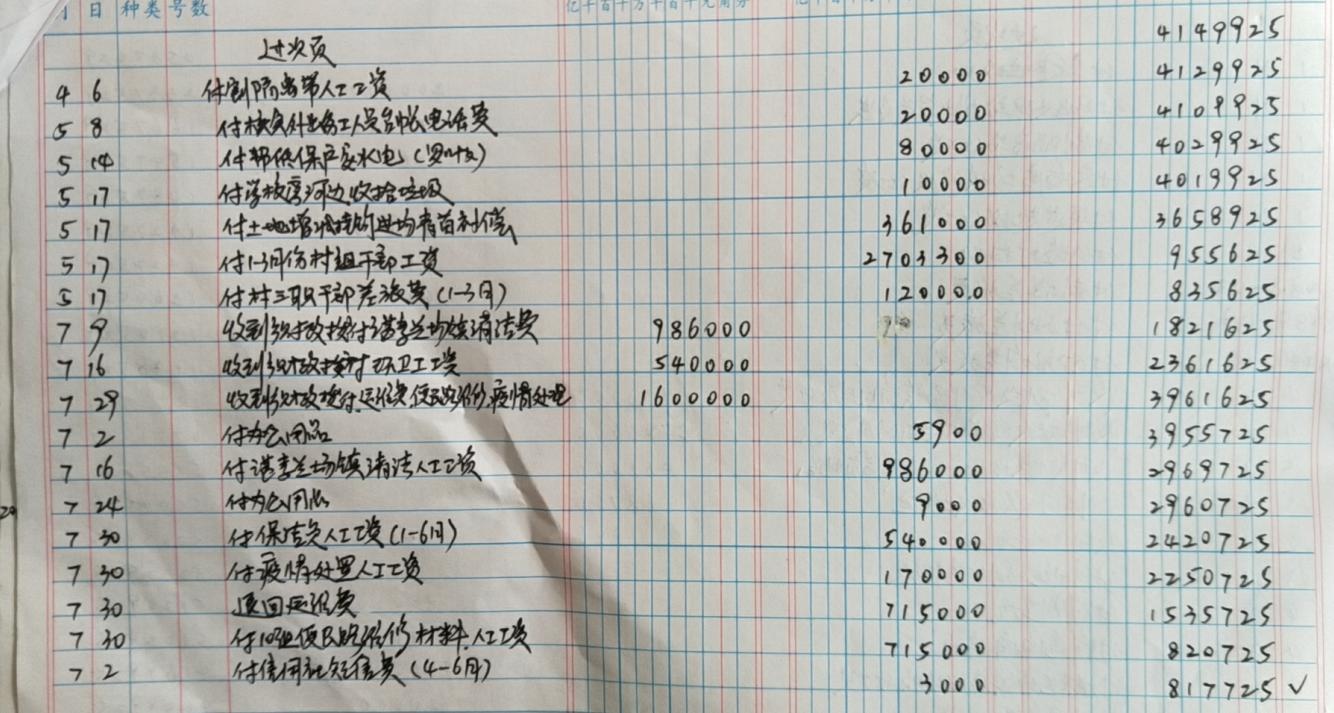 月 日 种类 号数 亿千百十万千百十元角分
过次页 4149925
4 6 付割隔离带人工工资 20000 4129925
5 8 付核查外出务工人员台帐电话费 20000 4109925
5 14 付帮低保户安水电 80000 4029925
5 17 付学校旁河边收拾垃圾 10000 4019925
5 17 付土地增减挂钩 青苗补偿 361000 3658925
5 17 付1-3月份村组干部工资 2703300 955625
5 17 付村三职干部差旅费(1-3月) 120000 835625
7 9 收到 财政拨付 场镇清洁费 986000 1821625
7 16 收到 财政拨付环卫工工资 540000 2361625
7 29 收到 财政拨付运维费便民路维修,疫情处理 1600000 3961625
7 2 付办公用品 5900 3955725
7 16 付 场镇清洁人工工资 986000 2969725
7 24 付办公用品 9000 2960725
7 30 付保洁员人工工资(1-6月) 540000 2420725
7 30 付疫情处置人工工资 170000 2250725
7 30 退回运维费 715000 1535725
7 30 付10组便民路维修材料.人工工资 715000 820725
7 2 付信用社短信费(4-6月) 3000 817725 ✓